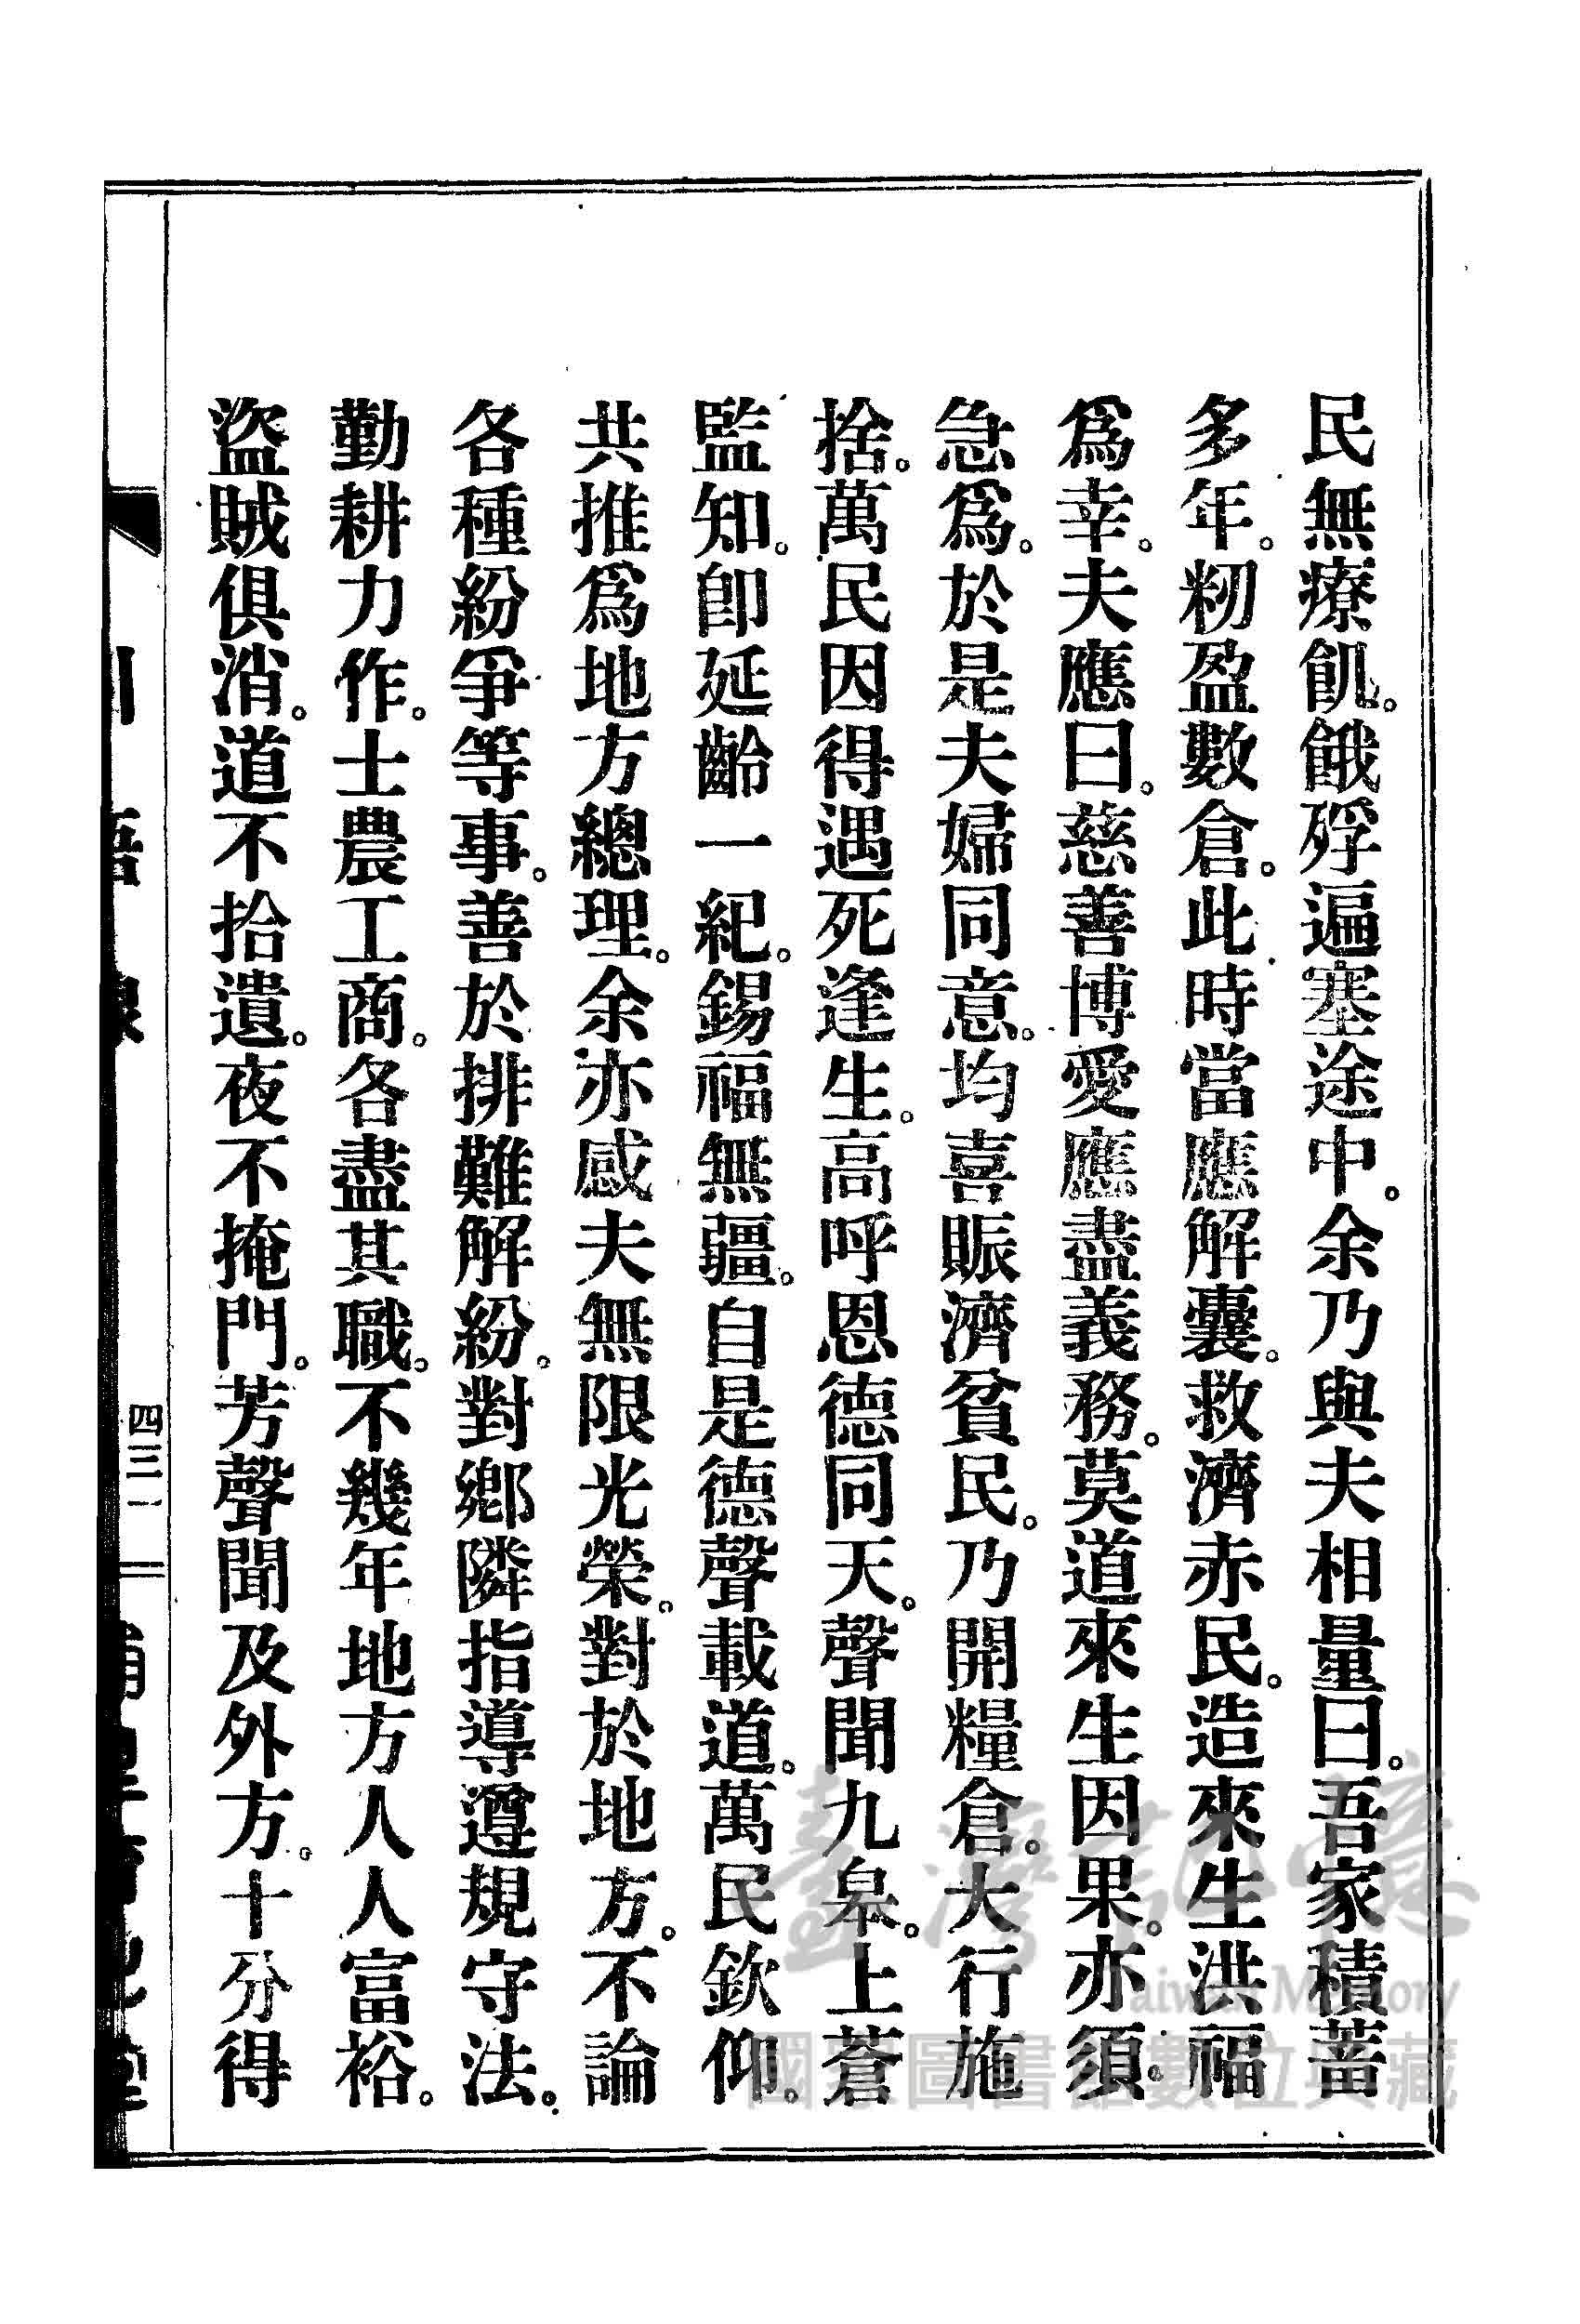 民無療飢。餓殍遍塞途中。余乃與夫相量曰。吾家積蓄
多年。籾盈數倉。此時當應解囊。救濟赤民。造來生洪福
爲幸。夫應曰。慈善博愛應盡義務。莫道來生因果。亦須
急爲。於是夫婦同意。均喜賑濟貧民。乃開糧倉。大行施
捨。萬民因得遇死逢生。高呼恩德同天。聲聞九皋。上蒼
監知。卽延齡一紀。錫福無疆。自是德聲載道。萬民欽仰。
共推爲地方總理。余亦感夫無限光榮。對於地方。不論
各種紛爭等事。善於排難解紛。對鄉隣指導遵規守法。
勤耕力作。士農工商。各盡其職。不幾年地方人人富裕。
盜賊俱消。道不拾遺。夜不掩門。芳聲聞及外方。十分得
四三一
臺灣記憶
Taiwan Memory
國家圖書館數位典藏